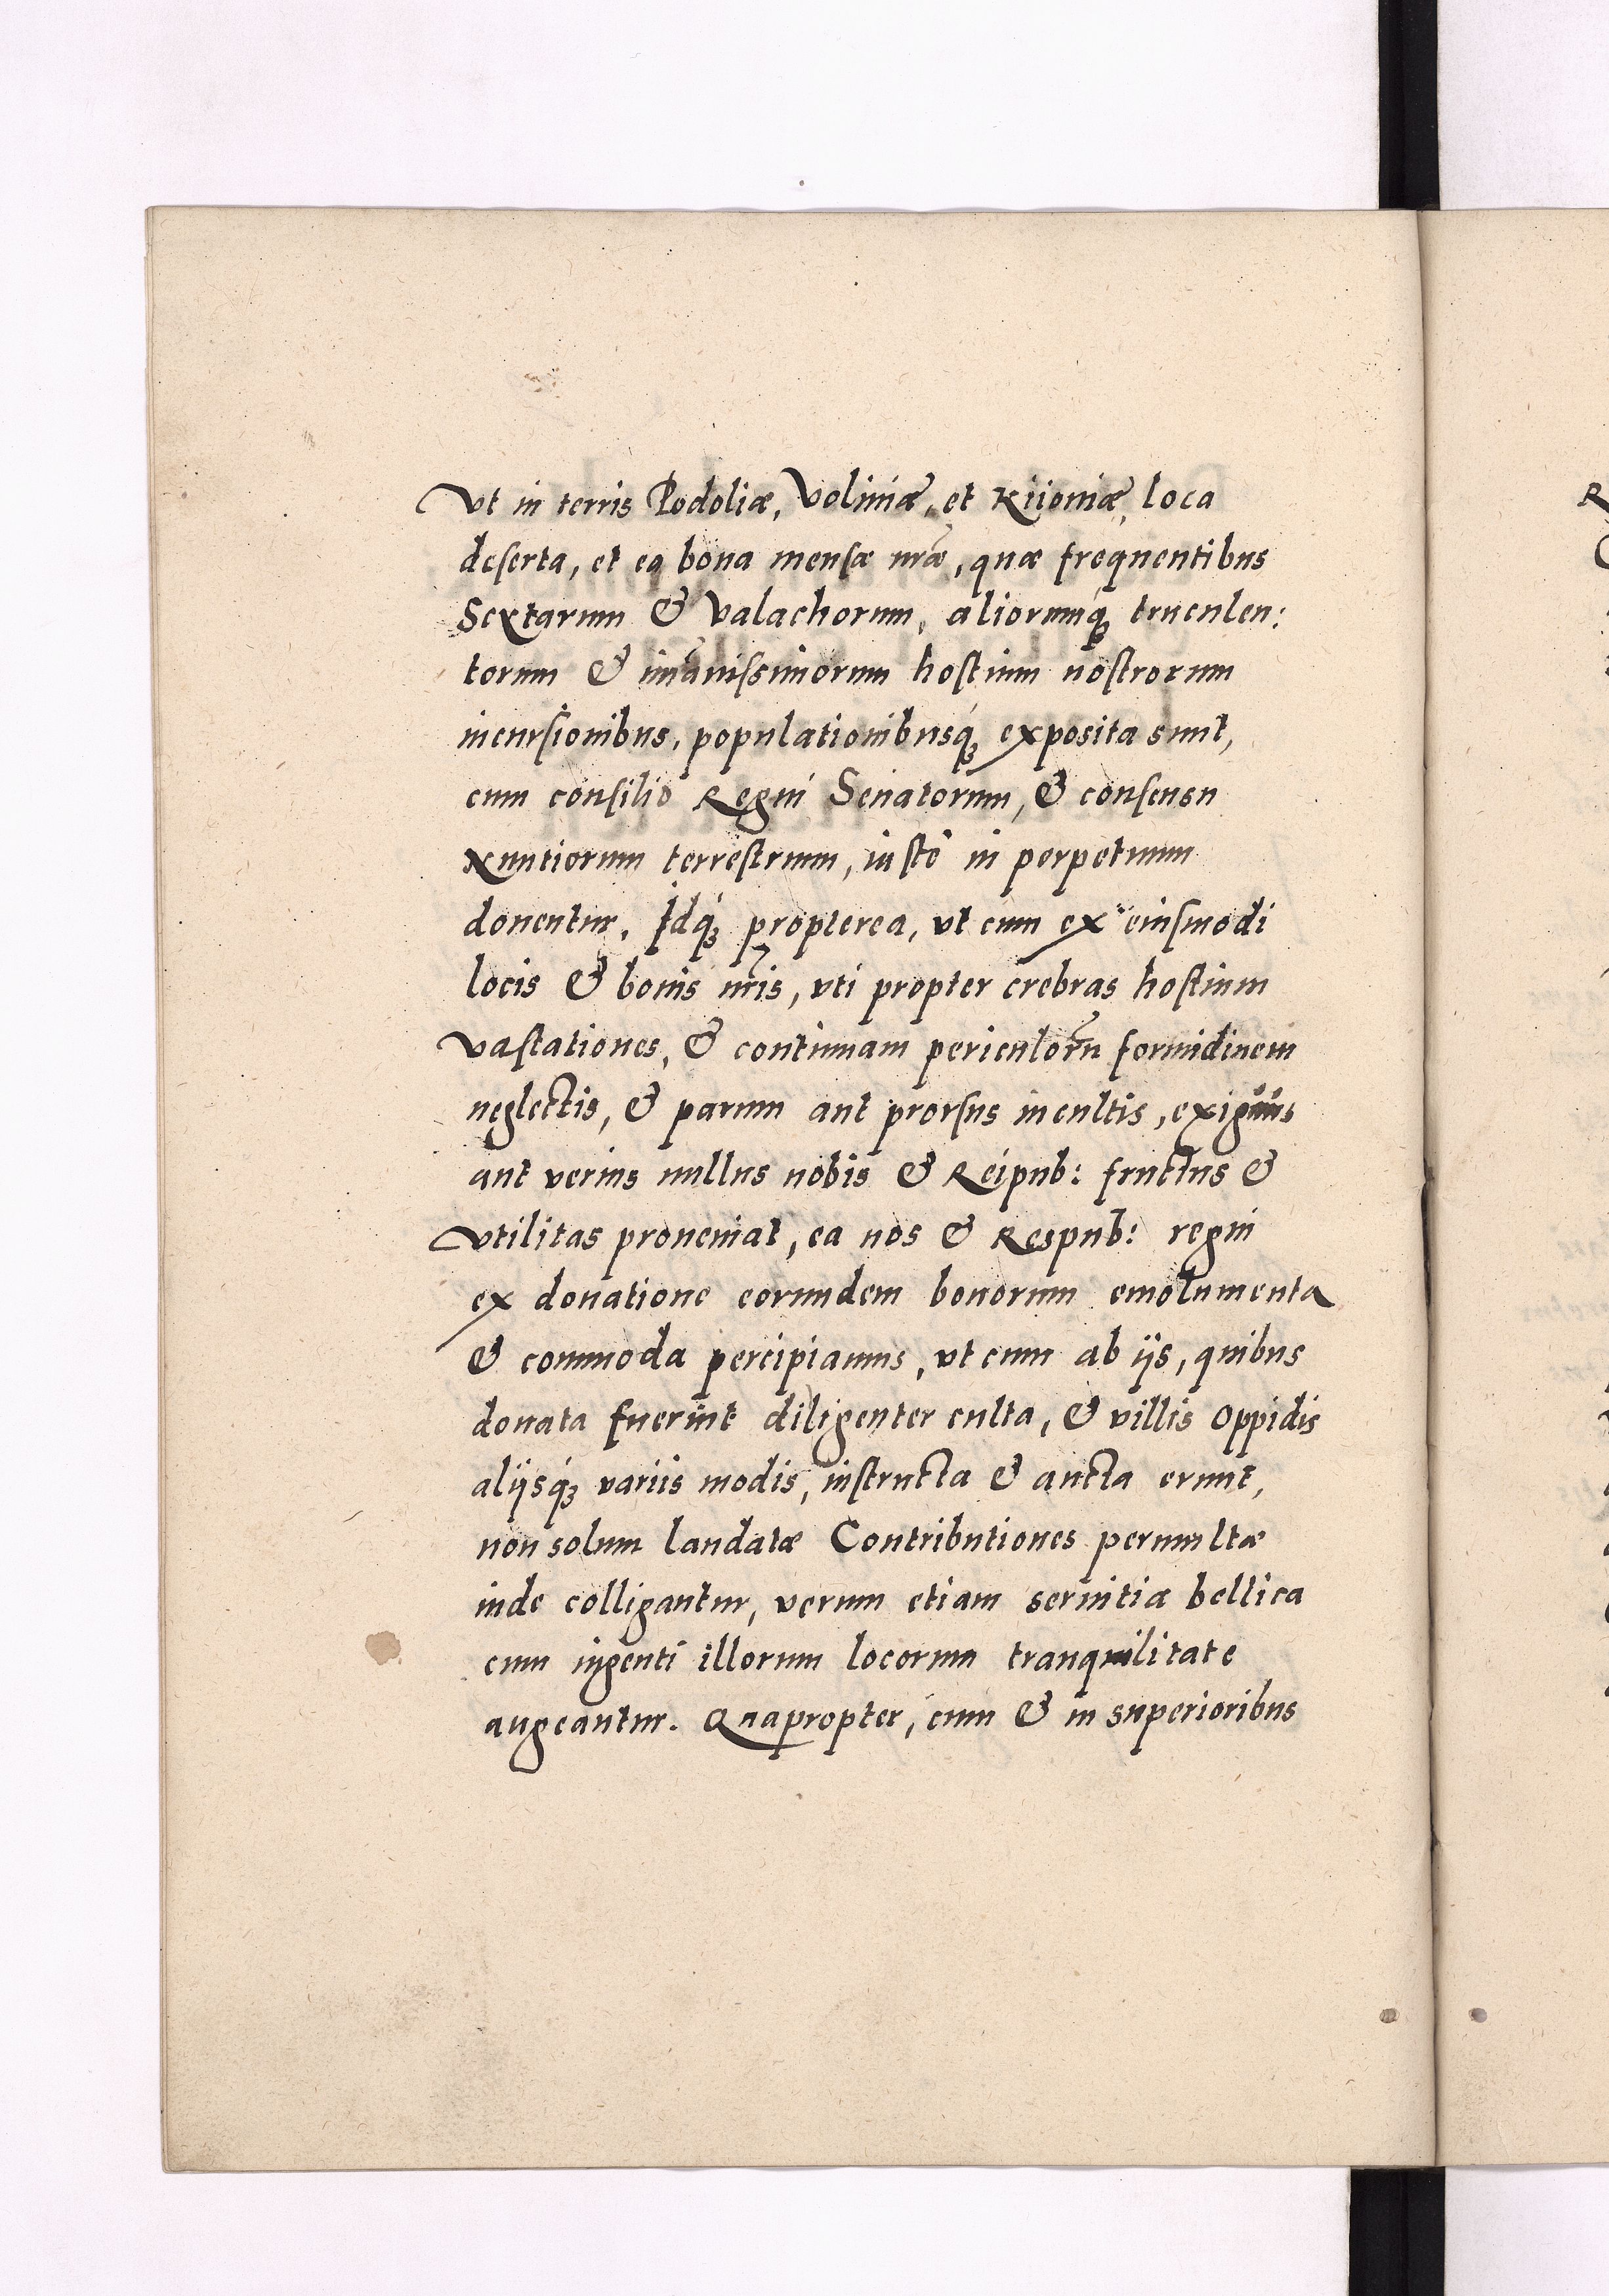 Vt in terris Podoliæ, Voliniæ, et Kiioniæ, loca
deserta, et ea bona mensæ nr̃æ, quæ frequentibus
Scytarum & Valachorum, aliorumq́ꝫ truculen:
torum & im̃anissimorum hostium nostrorum
incursionibus, populationibusq́ꝫ exposita sunt,
cum consilio Regni Senatorum, & consensu
Nuntiorum terrestrium, iusto in perpetuum
donentur. Idq́ꝫ propterea, vt cum ex eiusmodi
locis & bonis nr̃is, vti propter crebras hostium
vastationes, & continuam periculorũ formidinem
neglectis, & parum aut prorsus incultis, exiguus
aut verius nullus nobis & Reipub: fructus &
vtilitas proueniat, ea nos & Respub: regni
ex donatione eorundem bonorum emolumenta
& commoda percipiamus, vt cum ab ijs, quibus
donata fuerint diligenter culta, & villis oppidis
alijsq́ꝫ variis modis, instructa & aucta erunt,
non solum laudatæ Contributiones permultæ
inde colligantur, verum etiam seruitia bellica
cum ingenti illorum locorum tranquilitate
augeantur. Quapropter, cum & in superioribus